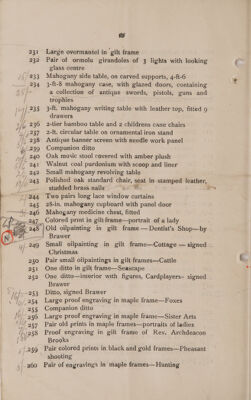 231 Large overmantel in gilt frame
232 Pair of ormolu girandoles of 3 lights with looking
glass centre
233 Mahogany side table, on carved supports, 4-ft-6
234 3-ft-8 mahogany case, with glazed doors, containing
a collection of antique swords, pistols, guns and
trophies
235 3-ft. mahogany writing table with leather top, fitted 9
drawers
236 2-tier bamboo table and 2 childrens cane chairs
237 2-ft. circular table on ornamental iron stand
238 Antique banner screen with needle work panel
239 Companion ditto
240 Oak music stool covered with amber plush
241 Walnut coal purdonium with scoop and liner
242 Small mahogany revolving table
243 Polished oak standard chair, seat in stamped leather,
studded brass nails
244 Two pairs long lace window curtains
245 28-in. mahogany cupboard with panel door
246 Mahogany medicine chest, fitted
247 Colored print in gilt frame—portrait of a lady
248 Old oilpainting in gilt frame—Dentist's Shop—by
Brawer
249 Small oilpainting in gilt frame—Cottage—signed
Christmas
250 Pair small oilpaintings in gilt frames—Cattle
251 One ditto in gilt frame—Seascape
252 One ditto—interior with figures, Cardplayers- signed
Brawer
253 Ditto, signed Brawer
254 Large proof engraving in maple frame—Foxes
255 Companion ditto
256 Large proof engraving in maple frame—Sister Arts
257 Pair old prints in maple frames—portraits of ladies
258 Proof engraving in gilt frame of Rev. Archdeacon
Brooks
259 Pair colored prints in black and gold frames—Pheasant
shooting
260 Pair of engravings in maple frames—Hunting